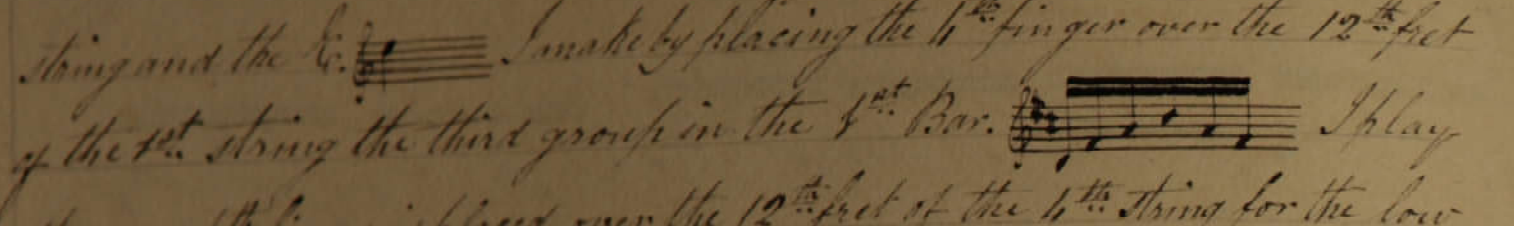 string and the E. I make by placing the 4th finger over the 12th fret
of the 1st string the third group in the 1st Bar. I play
placed over the 12th fret of the 4th string for the low